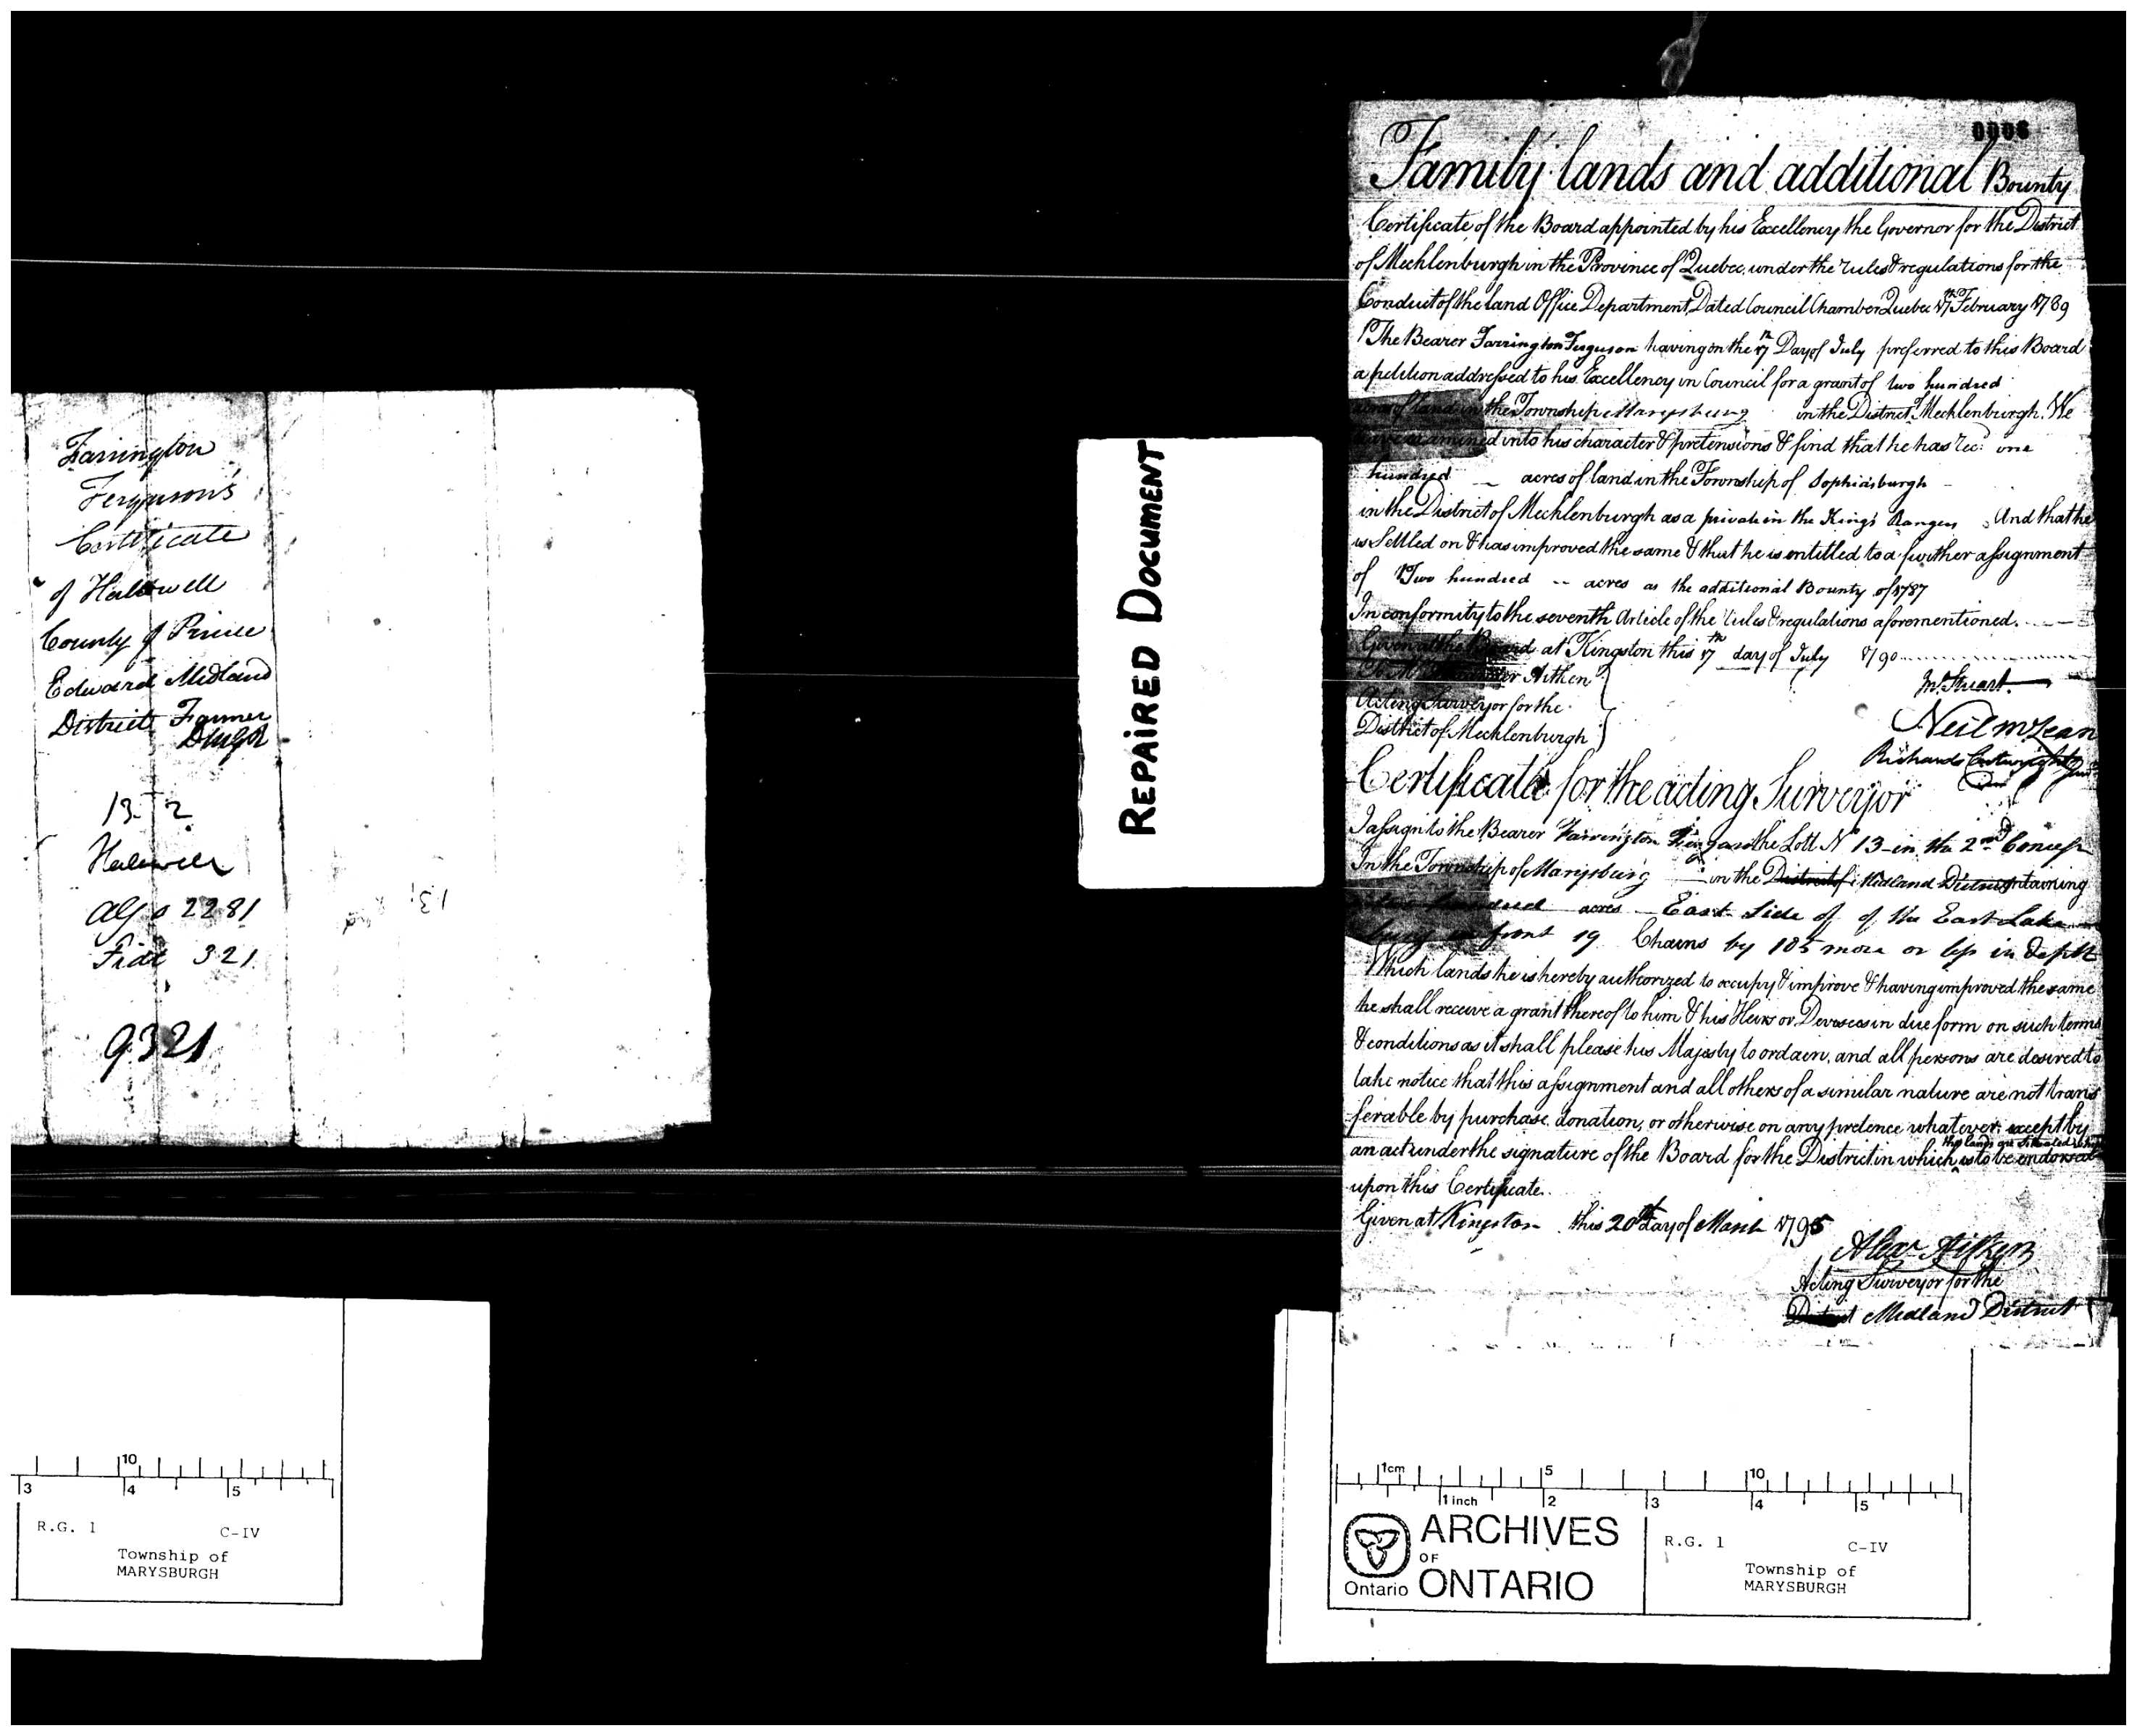 Farrington
Ferguson's
Certificate
of Hallowell
County of Prince
Edward Midland
District Farmer
13 2
Hallowell
2281
Fiat 321
9321
13
R.G. 1 C-IV
Township of
MARYSBURGH
10
3 4 5
REPAIRED DOCUMENT
0006
Family lands and additional Bounty
Certificate of the Board appointed by his Excellency the Governor for the District
of Mecklenburgh in the Province of Quebec, under the rules & regulations for the
Conduct of the land Office Department, Dated Council Chamber Quebec 17th February 1789
The Bearer Farrington Ferguson having on the 17th Day of July preferred to this Board
a petition addressed to his Excellency in Council for a grant of two hundred
acres of land in the Township Marysburg in the District of Mecklenburgh. We
have examined into his character & pretensions & find that he has rec.d one
hundred acres of land in the Township of Sophiasburgh
in the District of Mecklenburgh as a private in the King's Rangers And that he
is Settled on & has improved the same & that he is entitled to a further assignment
of Two hundred -- acres as the additional Bounty of 1787
In conformity to the seventh Article of the rules & regulations aforementioned.
Given at the Board at Kingston this 17th day of July 1790
To Mr Alexander Aitken
Acting Surveyor for the
District of Mecklenburgh
Jn. Stuart.
Neil McLean
Richard Cartwright Jun
Certificate for the acting Surveyor
I assign to the Bearer Farrington Ferguson the Lott No 13 in the 2nd Concess
In the Township of Marysburg in the District of Midland District containing
hundred acres East Side of of the East Lake
being in front 19 Chains by 105 more or less in depth
Which lands he is hereby authorized to occupy & improve & having improved the same
he shall receive a grant thereof to him & his Heirs or Devisees in due form on such terms
& conditions as it shall please his Majesty to ordain, and all persons are desired to
take notice that this assignment and all others of a similar nature are not trans
ferable by purchase, donation, or otherwise on any pretence whatever, except by
an act under the signature of the Board for the District in which the lands are situated which is to be endorsed
upon this Certificate.
Given at Kingston this 20th day of March 1795
Alexr Aitken
Acting Surveyor for the
District Midland District
1cm 5 10
1 inch 2 3 4 5
ARCHIVES
OF
Ontario ONTARIO
R.G. 1 C-IV
Township of
MARYSBURGH